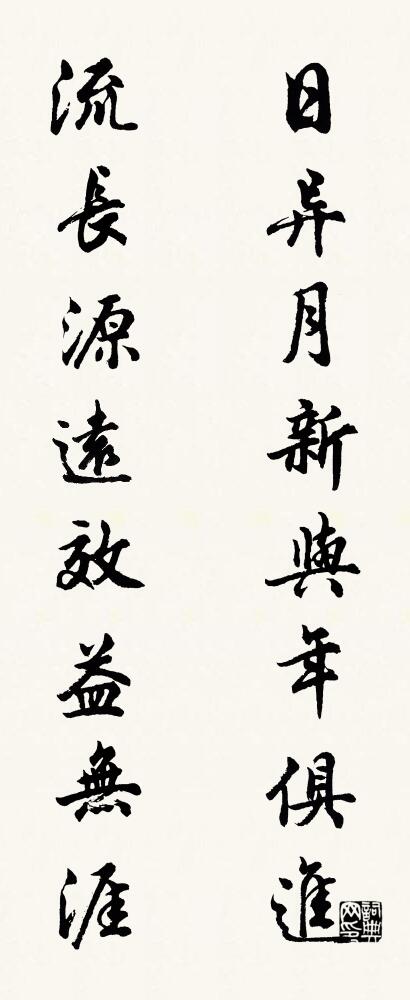 日异月新與年俱進
流長源遠效益無涯
詞典网印